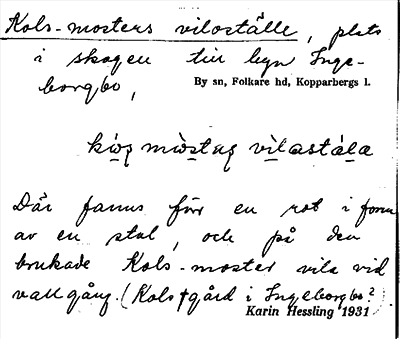 Kols-mosters viloställe, plats
i skogen till byn Inge-
borgbo,
By sn, Folkare hd, Kopparbergs l.
mo̱stas vi̱lastä́la
Där fanns förr en rot i form
av en stol, och på den
brukade Kols-moster vila vid
vallgång. (Kols †gård i Ingeborgbo?)
Karin Hessling 1931